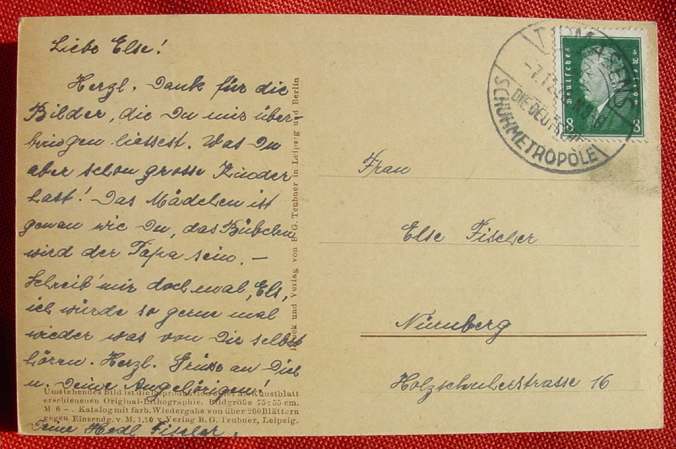 Liebe Else!
Herzl. Dank für die
Bilder, die Du mir über-
bringen liessest. Was Du
aber schon grosse Kinder
hast! Das Mädchen ist
genau wie Du, das Bübchen
wird der Papa sein. –
Schreib' mir doch mal, Els,
ich würde so gerne mal
wieder was von Dir selbst
hören. Herzl. Grüsse an Dich
u. Deine Angehörigen!
Deine Hedl Fischer.
Umstehendes Bild ist die als Kunstblatt
erschienenen Original-Lithographie. Bildgröße 75:55 cm.
M 6 –. Katalog mit farb. Wiedergabe von über 200 Blättern
gegen Einsendg. v. M. 1.10 v. Verlag B. G. Teubner, Leipzig.
Druck und Verlag von B. G. Teubner in Leipzig und Berlin
PIRMASENS
DIE DEUTSCHE
SCHUHMETROPOLE
Deutsches Reich
8 8
Frau
Else Fischer
Nürnberg
Holzschuherstrasse 16